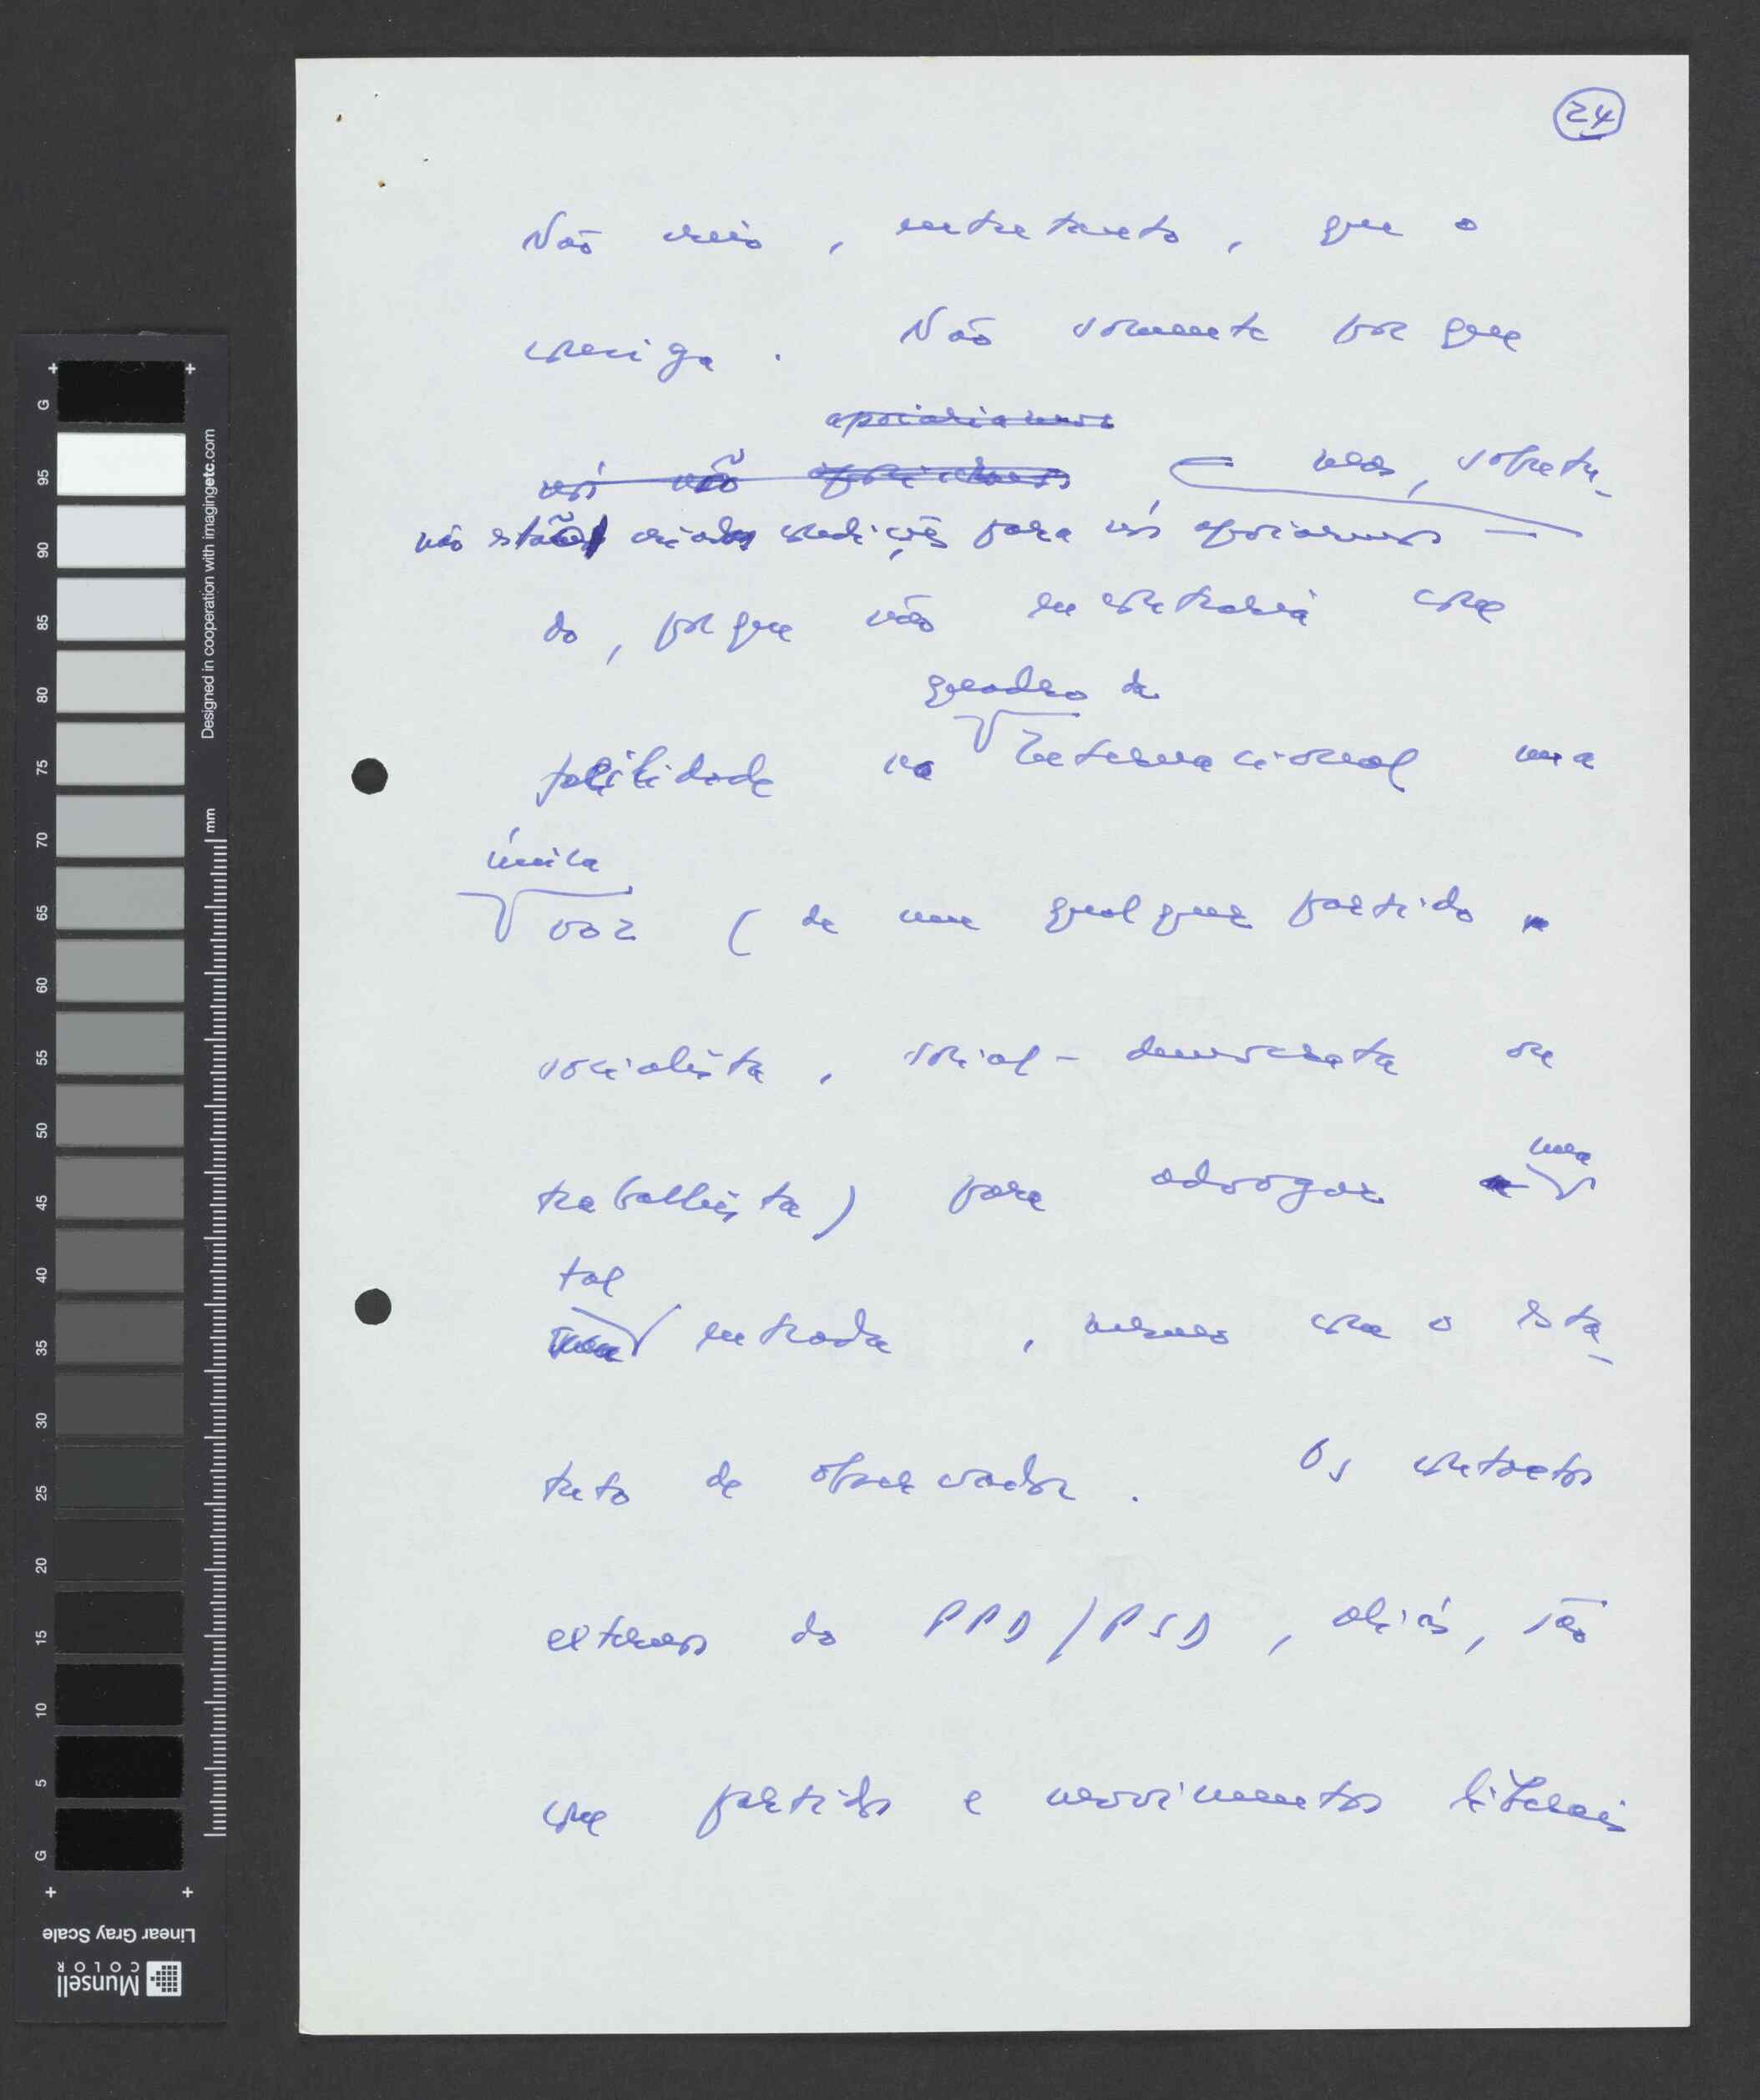 24
Não creio, entretanto, que o
consiga. Não somente porque
apoiaríamos
nós não apoiamos, mas, sobretu-
não estão criadas condições para nós apoiarmos
do, porque não encontrará com
quadro da
facilidade no Internacional uma
única
voz (de um qualquer partido
socialista, social-democrata ou
trabalhista) para advogar uma
tal
entrada, mesmo com o esta-
tuto de observador. Os contactos
externos do PPD/PSD, aliás, são
com partidos e movimentos liberais
G
95
90
85
80
75
70
65
60
55
50
45
40
35
30
25
20
15
10
5
G
mm
Designed in cooperation with imagingetc.com
Linear Gray Scale
Munsell
COLOR